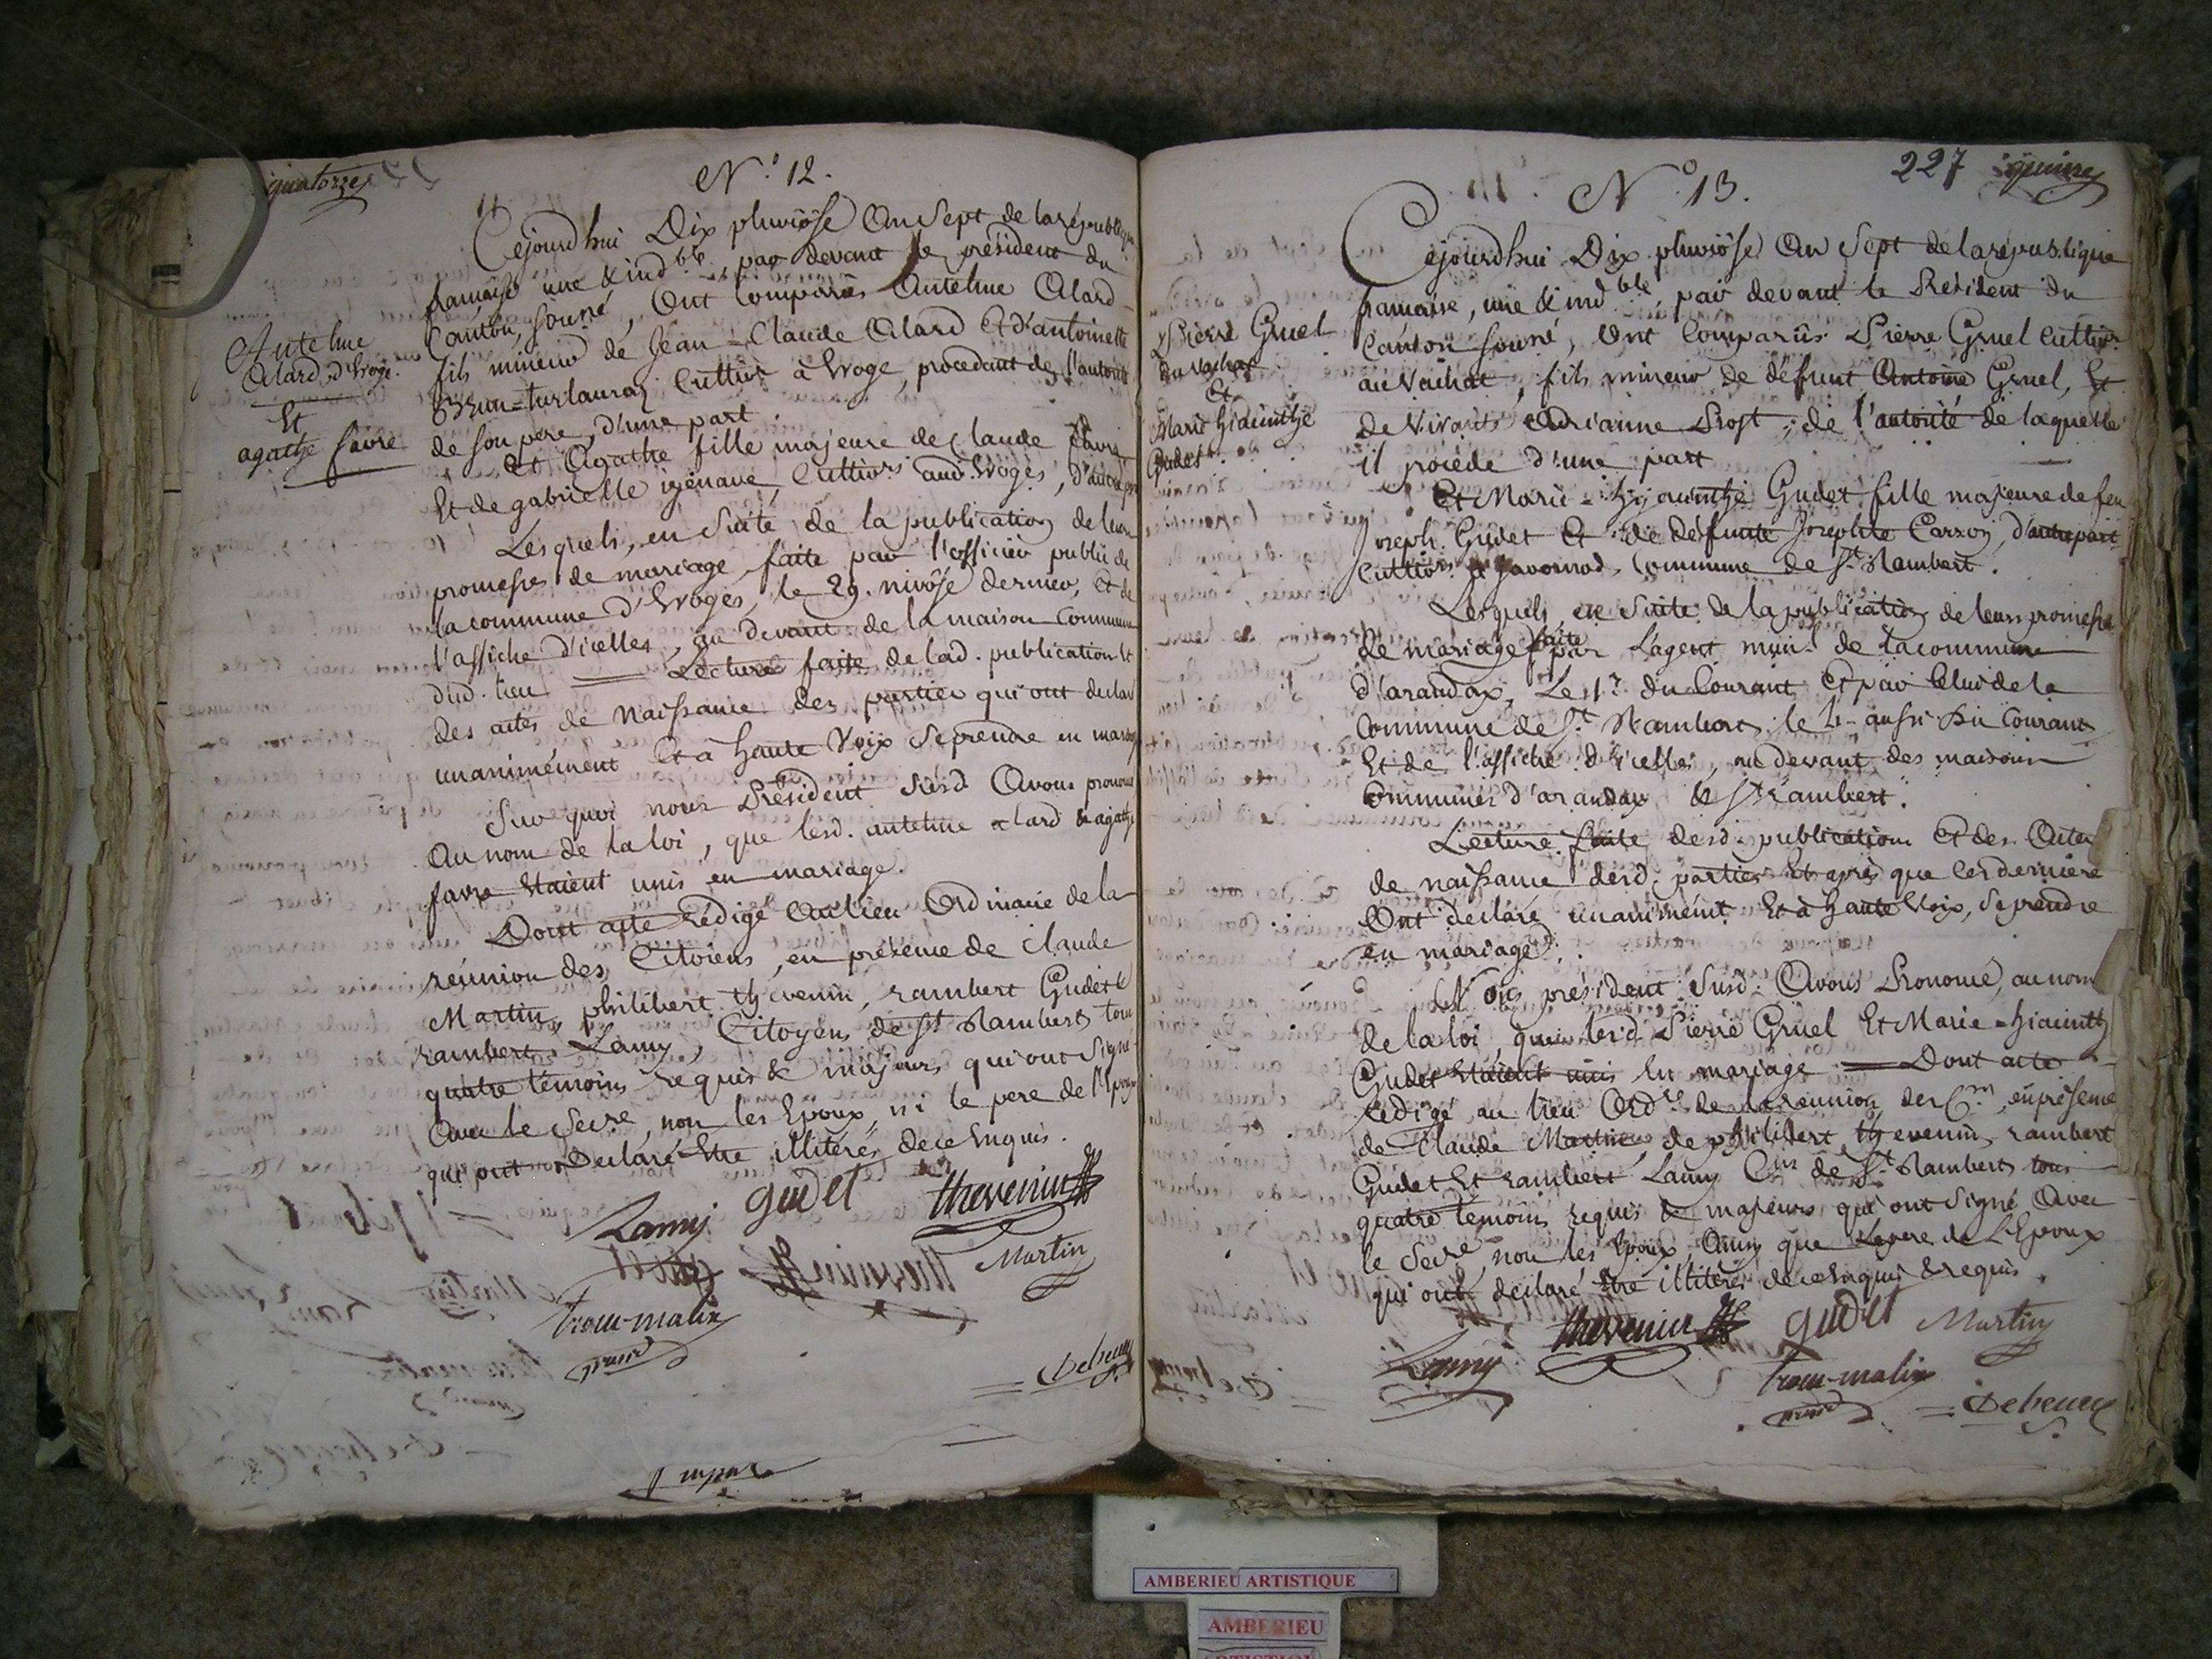 quatorze
N.° 12.
Cejourd'hui Dix pluviôse an Sept de la républ
française une & ind.ble par devant le président du
Canton, soussné, Ont Comparus Antelme Alard
fils mineur de Jean-Claude Alard Et d'antoinette
Brun-turlauraz Culttivr à Evoge, procedant de l'autorité
de son pere, d'une part.
Et Agathe fille majeure de Claude favre
Et de gabrielle igénave, Culttivrs aud. Evoges, d'autre
Lesquels, en Suite de la publication de leur
promesses de mariage, faite par l'officier public de
la commune d'Evoges, le 29. nivôse dernier, et de
l'affiche d'icelles, au devant de la maison Commune
dud. lieu = Lecture faite de lad. publication Et
des actes de Naissance des parties qui ont declaré
unanimément Et à haute Voix Se prendre en mariage
Sur quoi nous Président Susd. Avons prononcé
Au nom de la loi, que lesd. antelme alard & agathe
favre Etaient unis en mariage.
Dont acte rédigé Au lieu Ordinaire de la
réunion des Citoiens, en présence de Claude
Martin, philibert thevenin, rambert Gudet &
rambert Lamy, Citoyens de St Rambert tous
quatre témoins requis & majeurs qui ont Signé
Avec le Secre, non les Epoux, ni le pere de l'Epoux
qui ont Declaré Etre illitérés de ce Enquis.
Antelme
Alard d'Evoge.
Et
agathe favre
Lamy gudet thevenin
Martin
trocu-matin
présid
Debeney
227 quinze
N.° 13.
Cejourd'hui Dix pluviôse An Sept de la république
francaise, une & ind.ble, par devant le Président du
Canton soussné, Ont Comparûs Pierre Gruel Culttivr
au Vachat, fils mineur de défunt Antoine Gruel, Et
de Vivante Adrianne Prost, de l'autorité de laquelle
il procéde d'une part
Et Marie-hyacinthe Gudet fille majeure de feu
Joseph Gudet Et de défunte Josephte Carron, d'autre part
Culttivrs à Javornod, Commune de St. Rambert.
Lesquels, en Suite de la publication de leurs promesses
de mariage faite par L'agent mun.l de la commune
d'arandax, Le 1r. du Courant Et par Celui de la
Commune de St. Rambert, le 4 aussi du Courant
Et de l'affiche d'icelles, au devant des maisons
Communes d'arandax & St rambert.
Lecture faite desd. publications Et des Actes
de naissance desd. parties Et après que Ces dernière
Ont declaré unanimémt Et à haute Voix, Se prendre
en mariage.
Nous président Susd. Avons Prononcé, au nom
de la loi, que lesd. Pierre Gruel Et Marie-hiacinthe
Gudet Etaient unis En mariage = Dont acte
redigé au lieu Ord.re de la réunion des C.ns, en présence
de Claude Martin, de philibert thevenin, rambert
Gudet Et rambert Lamy C.ns de St. Rambert tous
quatre témoins requis & majeurs qui ont Signé Avec
le Secre, non les Epoux, Ainsi que Le pere de L'Epoux
qui ont declaré Etre illitérés de ce Enquis & requis.
Pierre Gruel
du Vachat
Et
Marie hiacinthe
Gudet
Lamy thevenin gudet Martin
trocu-matin
présid
Debeney
AMBERIEU ARTISTIQUE
AMBERIEU
ARTISTIQUE